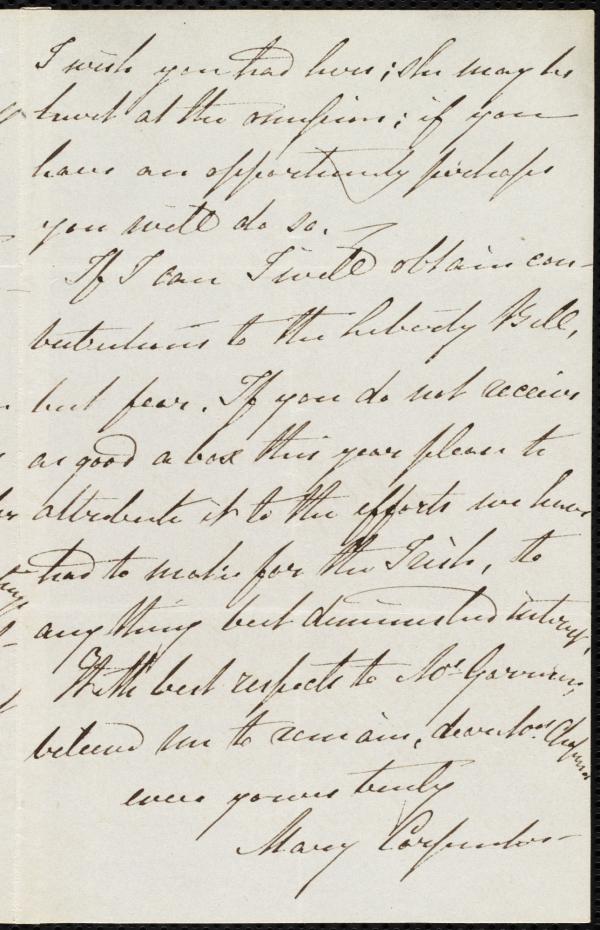 I wish you had her; she may be
trust at the museum; if you
have an opportunity perhaps
you will do so.
If I can I will obtain con-
tributions to the Liberty Bell,
but fear. If you do not receive
as good a box this year please to
attribute it to the efforts we have
had to make for the Irish, to
any thing but diminished interest.
With best respects to Mr. Garrison,
believe me to remain, dear Mrs. Chapman
ever yours truly
Mary Carpenter